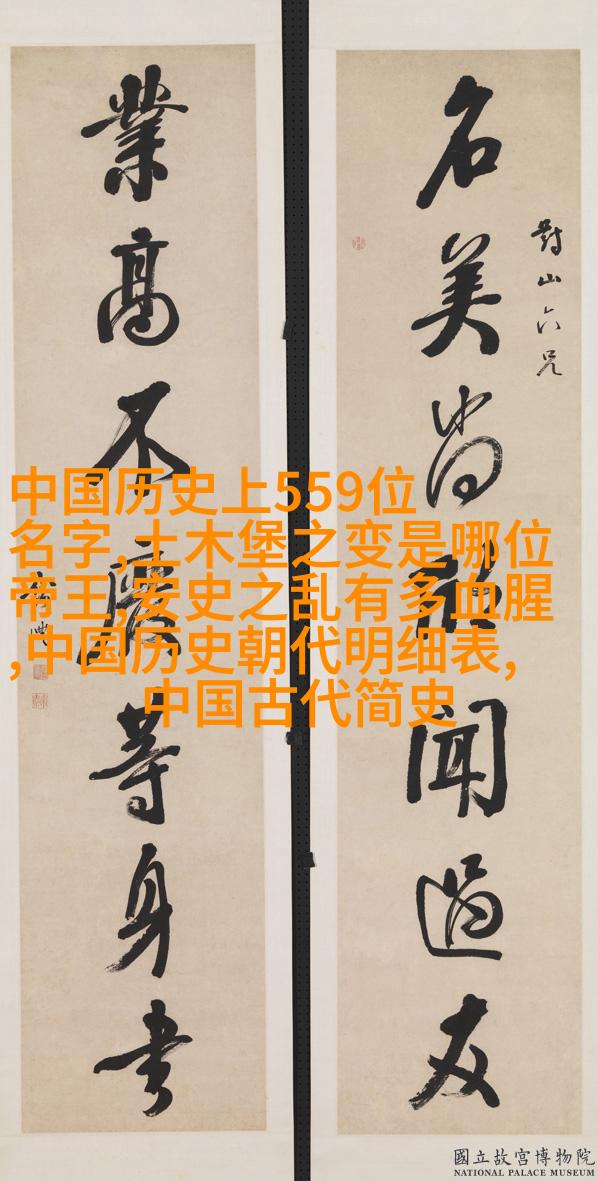 對山六兄
名美尚欲聞過友
業高不廢等身書
中国历史上559位
名字,土木堡之变是哪位
帝王,安史之乱有多血腥
,中国历史朝代明细表,
中国古代简史
國立故宮博物院
NATIONAL PALACE MUSEUM